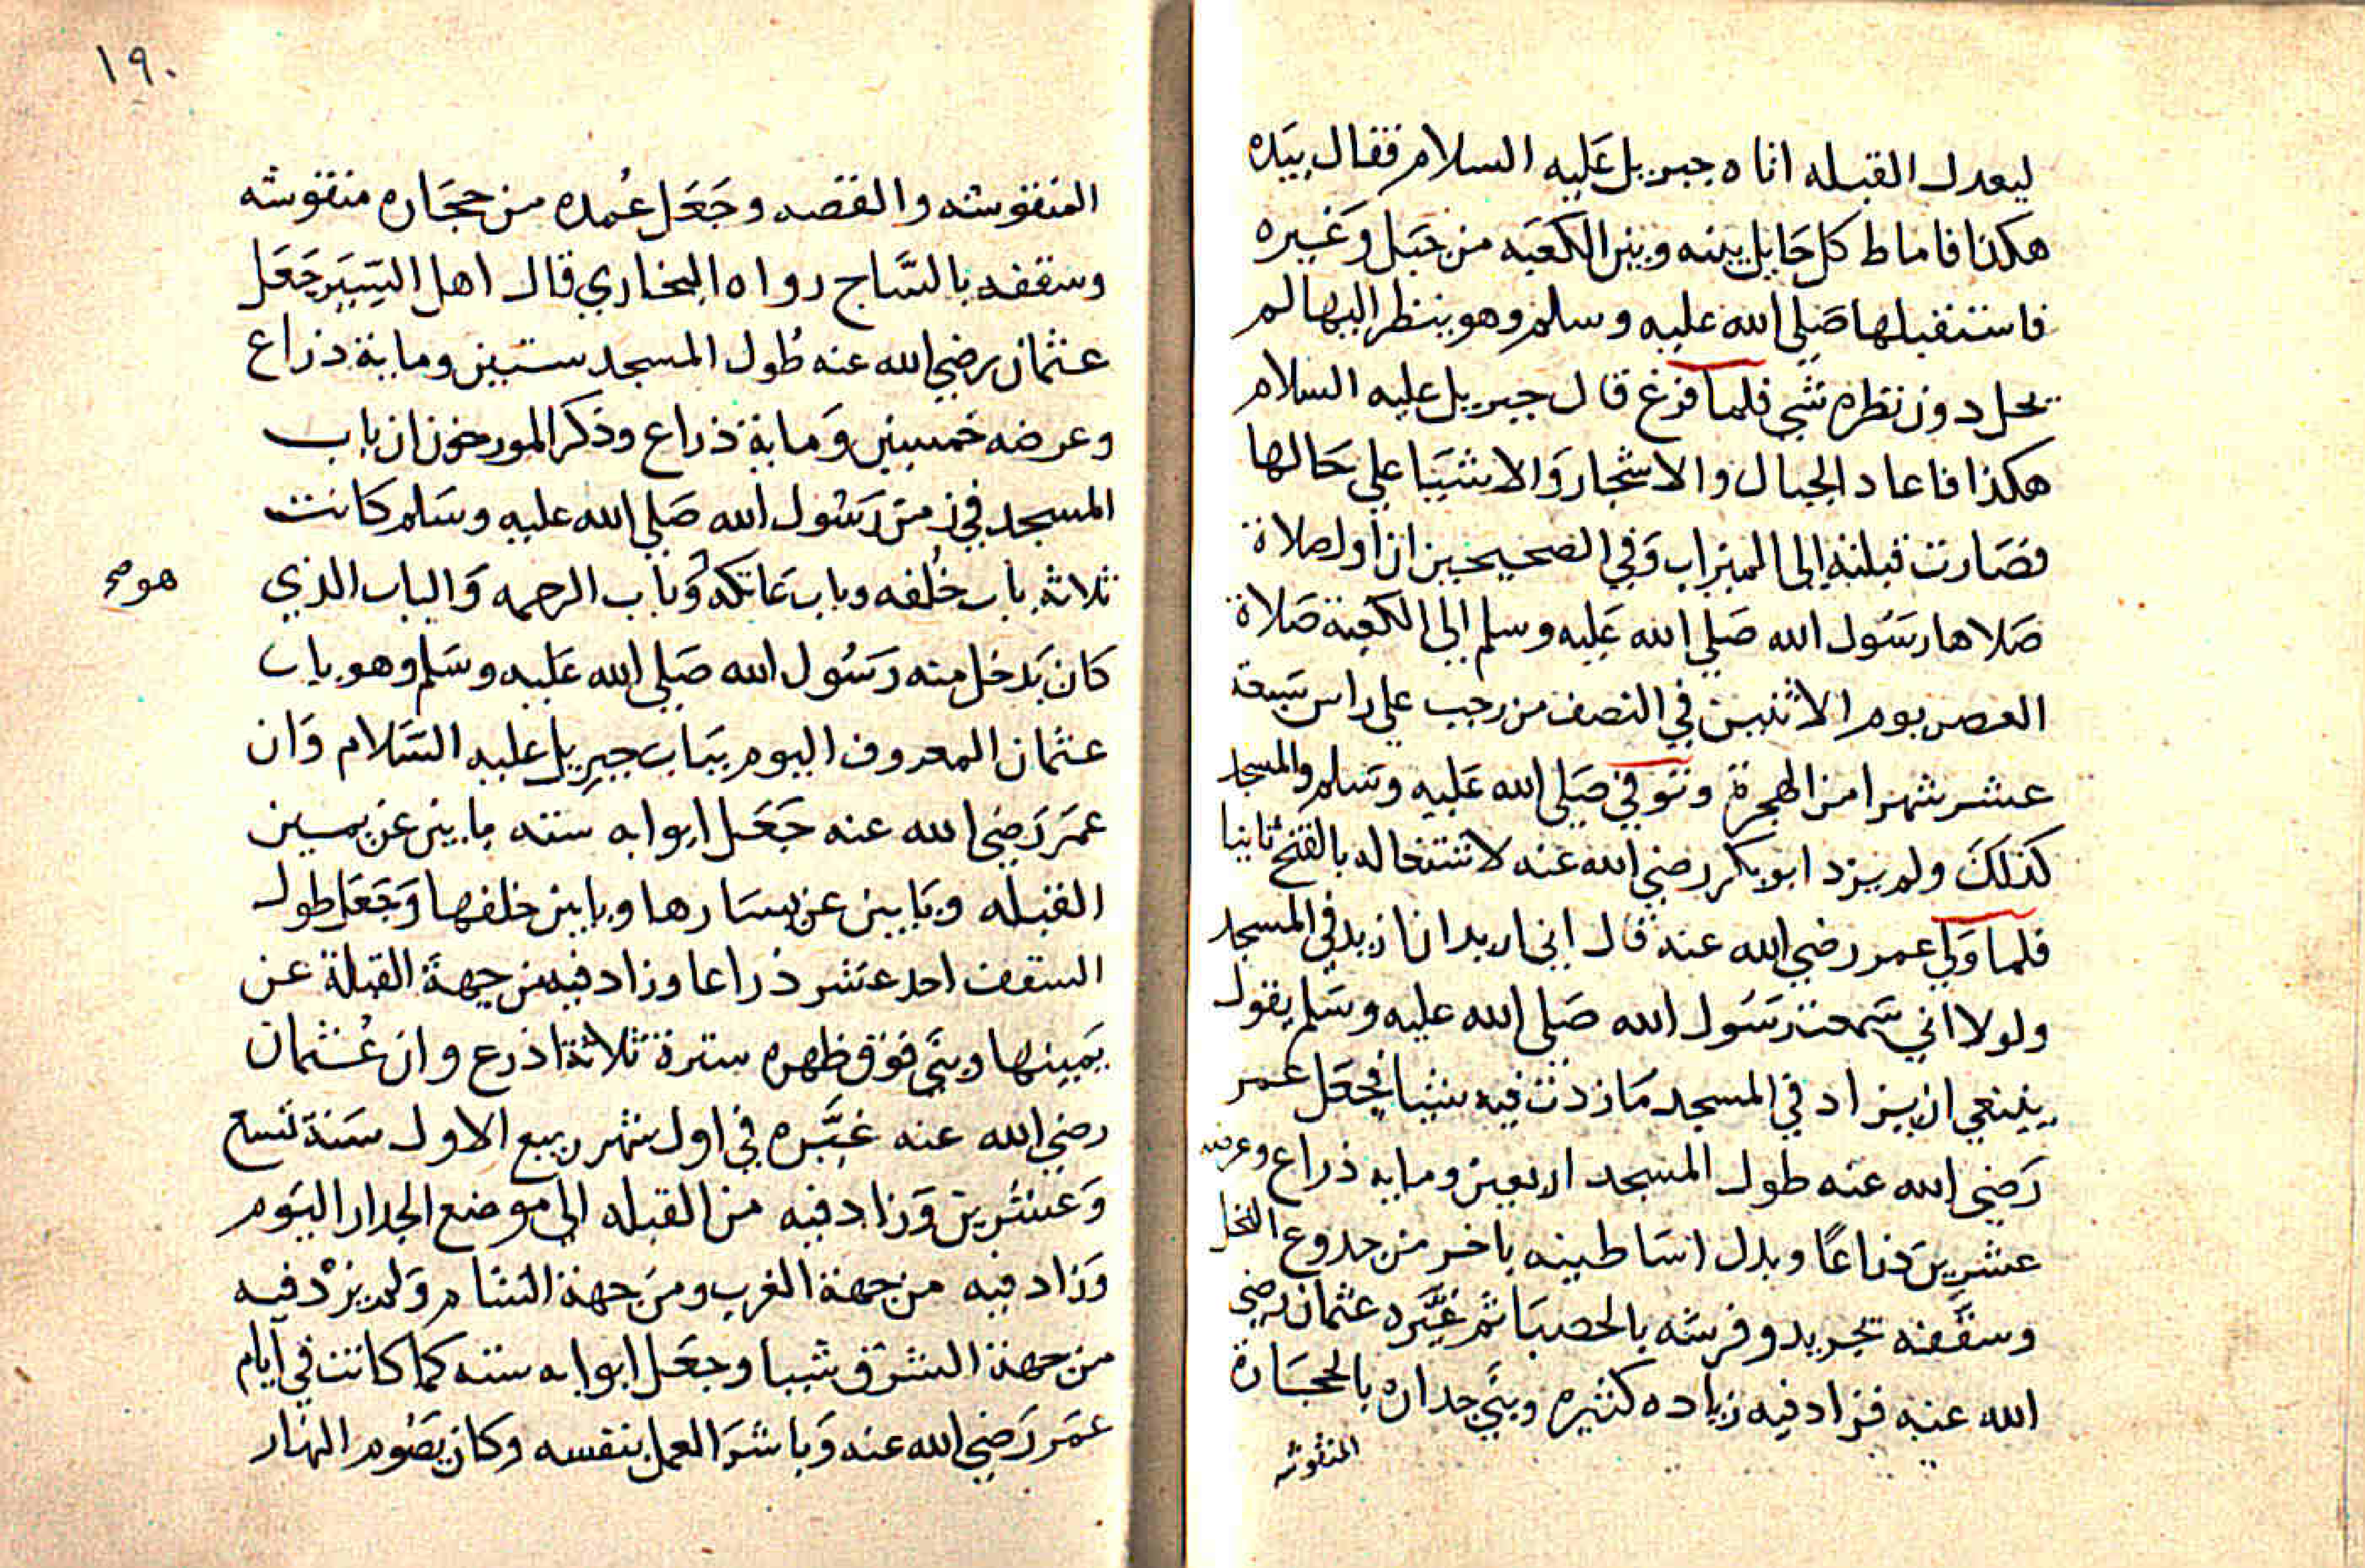 ليعدل القبله اتاه جبريل عَليه السلام فقال بيَده
هكذا فاماط كل حَايل بينه وبين الكعبَه من جبَل وغَيره
فاستقبلها صَلي الله عليه وسلم وهو ينظر اليها لم
يحل دون نظره شي فلما فرغ قال جبريل عليه السلام
هكذا فاعاد الجبال والاشجار وَالاشيَا علي حَالها
فصَارت قبلته الى الميزاب وَفي الصحيحين ان اول صلاة
صَلاها رسَول الله صَلي الله عَليه وسلم الى الكعبة صَلاة
العصر يوم الاثنين في النصف من رجب علي راس سَبعة
عشر شهرا من الهجرة وتوفي صَلي الله عَليه وسَلم والمسجد
كذلكَ ولم يزد ابو بكر رضي الله عنه لاشتغاله بالفتح ثانيا
فلما وَلي عمر رضي الله عنه قال اني اريد ان ازيد في المسجد
ولولا اني سَمعت رسَول الله صَلي الله عليه وسَلم يقول
ينبغي ان يزاد في المسجد مَا زدت فيه شيا فجعَل عمر
رَضي الله عنه طول المسجد اربعين ومايه ذراع وعرضه
عشرينَ ذراعًا وبدل اسَاطينه باخر من جدوع النخل
وسقَّفه بجريد وفرشه بالحصبَا ثم غيَّره عثمان رضي
الله عنه فزاد فيه زياده كثيره وبنَي جداره بالحجَارة
المنقوشه
١٩٠
المنقوشه والقصه وجَعَل عُمده من حجَاره منقوشه
وسقفه بالسَّاج رواه البخاري قال اهل السيَر جَعَل
عثمان رضي الله عنه طُول المسجد ستين وماية ذراع
وعرضه خمسين وَماية ذراع وذكر المورخون ان باب
المسجد في زمن رَسُول الله صَلي الله عليه وسَلم كانت
ثلاثه باب خُلفه وباب عَاتكه وَباب الرحمه وَالباب الذي
هو صح
كان يَدخل منه رَسُول الله صَلي الله عَليه وسَلم وهو باب
عثمان المعروف اليوم ببَاب جبريل عليه السَلام وَان
عمَر رَضي الله عنه جَعَل ابوابه سته بابين عن يمين
القبله وبَابين عن يسَارها وبابين خلفها وَجَعَل طول
السقف احد عشر ذراعا وزاد فيه من جهة القبلة عن
يَمينها وبنَي فوق ظهره سترة ثلاثة اذرع وان عُثمان
رضي الله عنه غيَّره في اول شهر ربيع الاول سَنة تسع
وَعشرين وَزاد فيه من القبله الي موضع الجدار اليَوم
وَزاد فيه من جهة الغرب ومن جهة الشام وَلم يزدْ فيه
من جهة الشرق شيا وجعَل ابوابه سته كما كانت في ايام
عمَر رَضي الله عنه وَباشرَ العمل بنفسه وكان يصَوم النهار